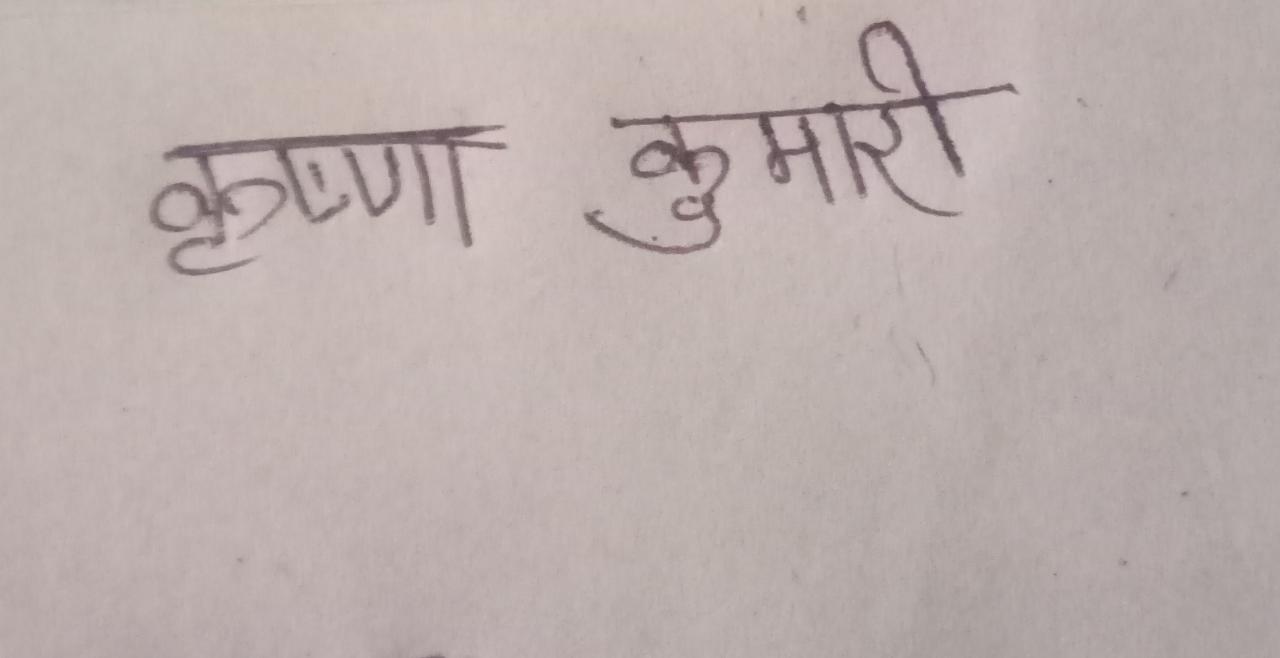 कृष्णा कुमारी